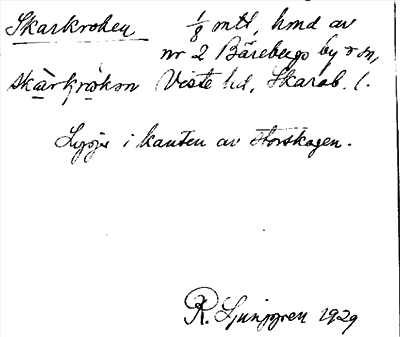 Skarkroken 1/8 mtl, hmd av
nr 2 Bärebergs by o sn,
skàrkrókən Viste hd, Skarab. l.
Ligger i kanten av Storskogen.
R. Ljunggren 1929